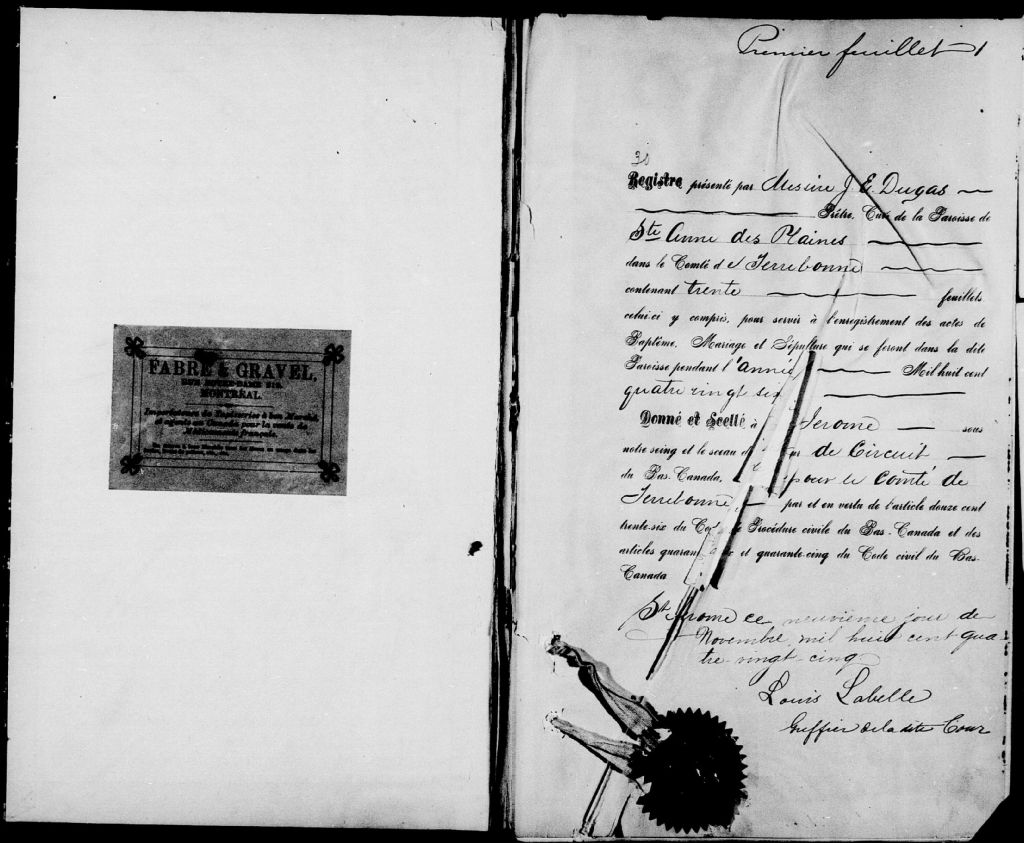 FABRE & GRAVEL,
RUE NOTRE-DAME 219,
MONTRÉAL.
Importateurs de Papeteries à bon Marché,
et agents en Canada pour la vente de
française.
Premier feuillet 1
30
Registre présenté par Messire J. E. Dugas
Prêtre, Curé de la Paroisse de
Ste Anne des Plaines
dans le Comté de Terrebonne
contenant trente feuillets
celui-ci y compris, pour servir à l'enregistrement des actes de
Baptême, Mariage et Sépulture qui se feront dans la dite
Paroisse pendant l'année Mil huit cent
quatre vingt six
Donné et Scellé à Jerome sous
notre seing et le sceau de Circuit
du Bas-Canada, pour le Comté de
Terrebonne, par et en vertu de l'article douze cent
trente-six du Code de Procédure civile du Bas-Canada et des
articles quarante et quarante-cinq du Code civil du Bas-
Canada
St Jerome ce neuvième jour de
Novembre mil huit cent qua-
tre-vingt-cinq
Louis Labelle
Greffier de la dite Cour